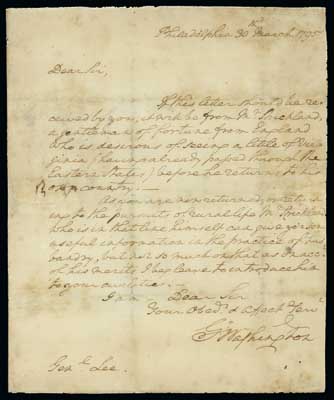 Philadelphia 30th March 1795
Dear Sir,
If this letter should be re-
ceived by you, it will be from Mr. Strickland,
a gentleman of fortune from England
who is desirous of seeing a little of Vir-
ginia (having already passed through the
Eastern States,) before he returns to his
own country. —
As you are now returned, or return
ing to the pursuits of rural life Mr. Strickland
who is in that line himself can give you some
useful information in the practice of hus-
bandry, but not so much on that as on acct.
of his merits, I beg leave to introduce him
to your civilities. —
I am Dear Sir
Your Obedt. & Affect. Servt.
Go: Washington
Genl. Lee.